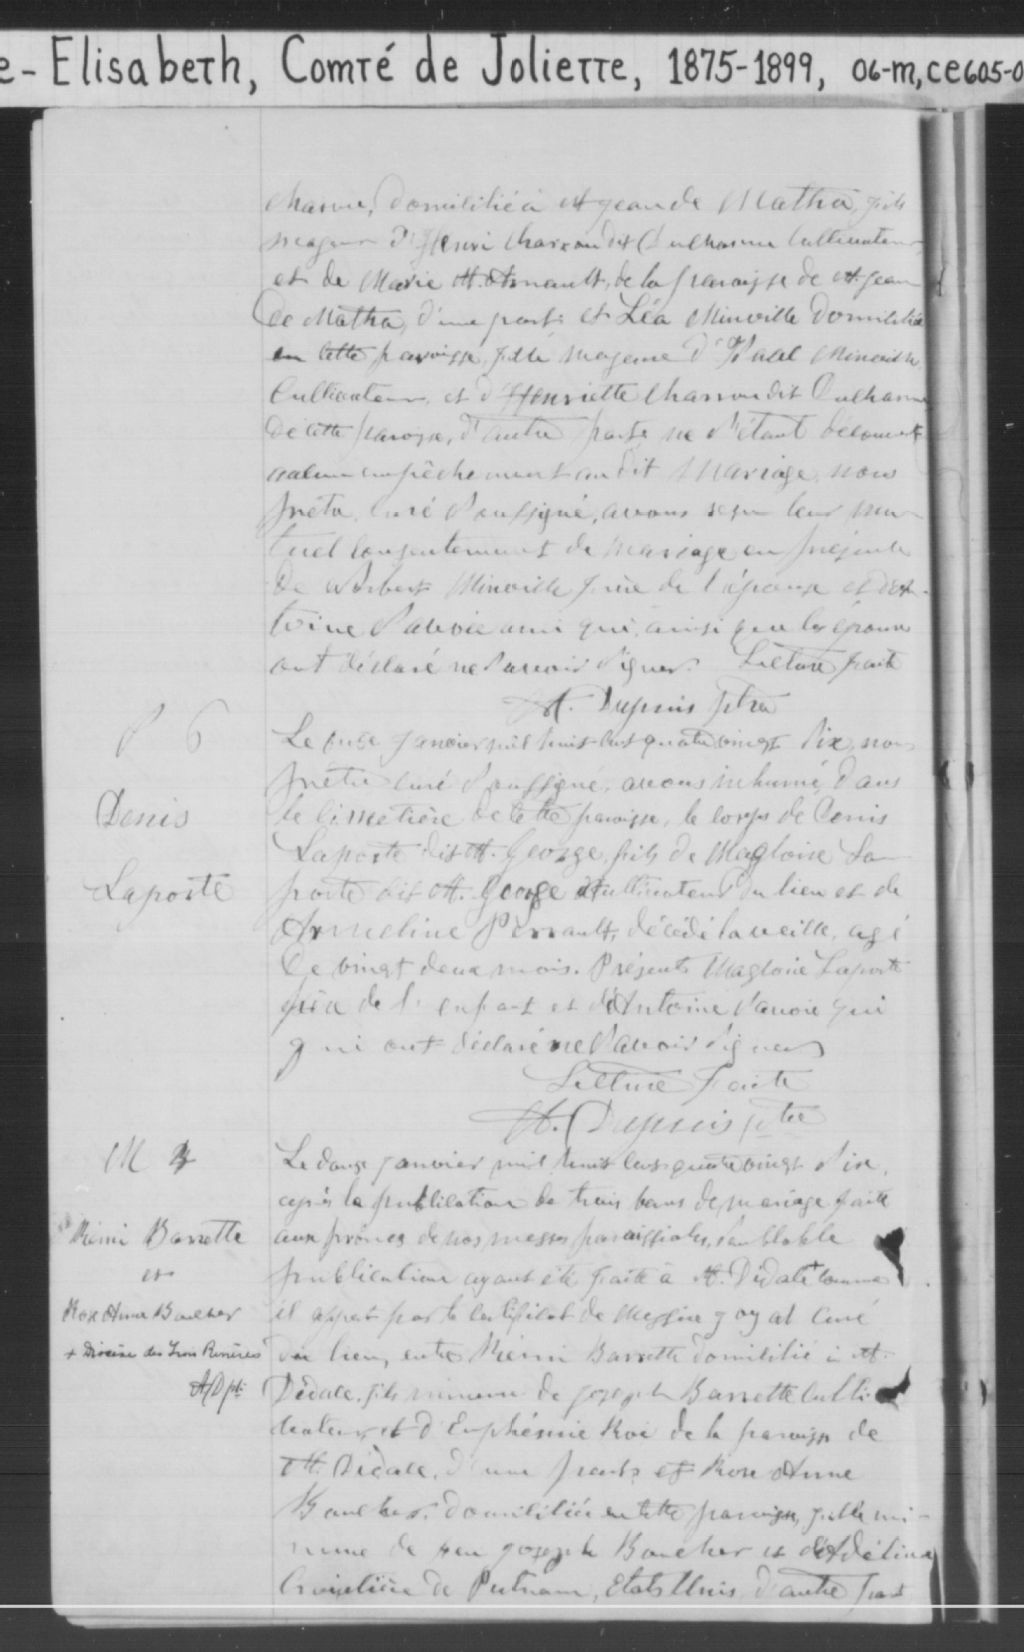 e-Elisabeth, Comté de Joliette, 1875-1899, 06-m, ce605-0
charme, domicilié à St Jean de Matha, fils
majeur d'Henri Charron dit Ducharme Cultivateur
et de Marie St. Arnault, de la paroisse de St. Jean
de Matha, d'une part; et Léa Minville domiciliée
en cette paroisse, fille majeure d' Minville,
Cultivateur, et d'Henriette Charron dit Ducharme
de cette paroisse, d'autre part; ne s'étant découvert
aucun empêchement au dit mariage, nous
prêtre, curé soussigné, avons reçu leur mu-
tuel consentement de mariage en présence
de Minville frère de l'épouse et d'An-
toine Savoie ami qui, ainsi que les époux
ont déclaré ne savoir signer. Lecture faite
A. Dupuis ptre
S 6
Denis
Laporte
Le onze janvier mil huit cent quatre vingt dix, nous
prêtre curé soussigné, avons inhumé dans
le cimetière de cette paroisse, le corps de Denis
Laporte dit St. George, fils de Magloire La-
porte dit St. George cultivateur du lieu et de
Armeline Perrault, décédé la veille, agé
de vingt deux mois. Présents Magloire Laporte
père de l'enfant et d'Antoine Savoie qui
qui ont déclaré ne savoir signer
Lecture Faite
A. Dupuis ptre
M 3
Rémi Barrette
et
Rose Anna Boucher
+ Diocèse des Trois Rivières
A/D ptr
Le douze janvier mil huit cent quatre vingt dix,
après la publication de trois bans de mariage faite
aux prônes de nos messes paroissiales, semblable
publication ayant été faite à St. Didace + comme
il appert par le certificat de Messire curé
du lieu, entre Rémi Barrette domicilié à St.
Didace, fils mineur de Joseph Barrette culti-
vateur et d'Euphémie Roi de la paroisse de
St. Didace, d'une part; et Rose Anne
Boucher, domiciliée en cette paroisse, fille mi-
neure de feu Joseph Boucher et d'Adélina
de Putnam, Etats Unis, d'autre part